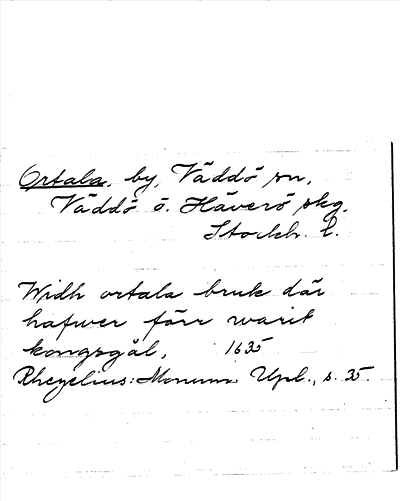 Ortala, by, Väddö sn,
Väddö o. Häverö skg.
Stockh. l.
Widh ortala bruk där
hafwer förr warit
kongsgål, 1635
Rhezelius: Monum. Upl., s. 35.